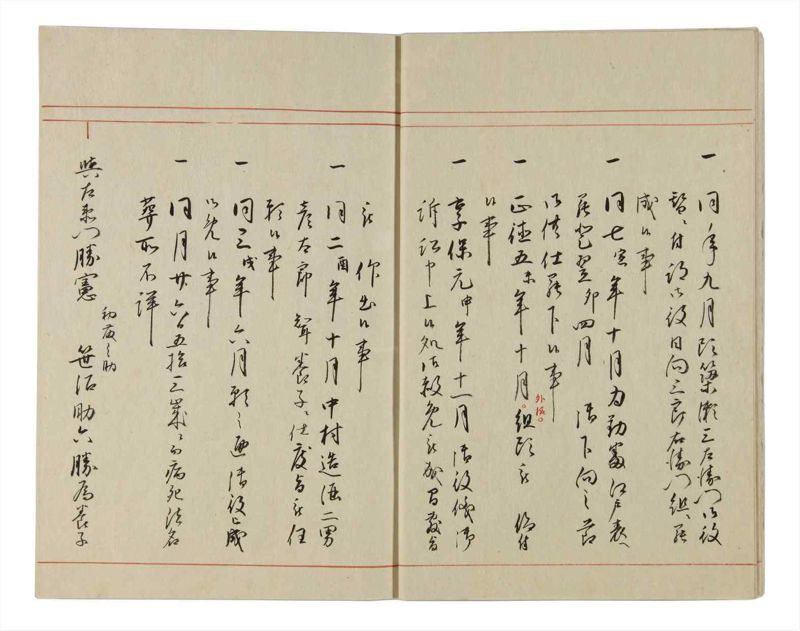 一 同年九月頭築瀬三左衛門御役
替ニ付跡御役日向三郎右衛門組ニ罷
成候事
一 同七寅年十月為勤番江戸表へ
罷登翌卯四月 御下向之節
御供仕罷下候事
一 正徳五未年十月組頭被 仰付
外張
候事
一 享保元申年十一月 御役儀御
訴訟申上候処御赦免被成旨
被 仰出候事
一 同二酉年十月中村造酒二男
彦太郎 聟養子ニ仕度旨被任
願候事
一 同三戌年六月願之通御役
御免候事
一 同月廿六日五拾三歳ニ而病死法名
葬所不詳
與左衛門勝憲
初 之助
笹沼助六勝為養子